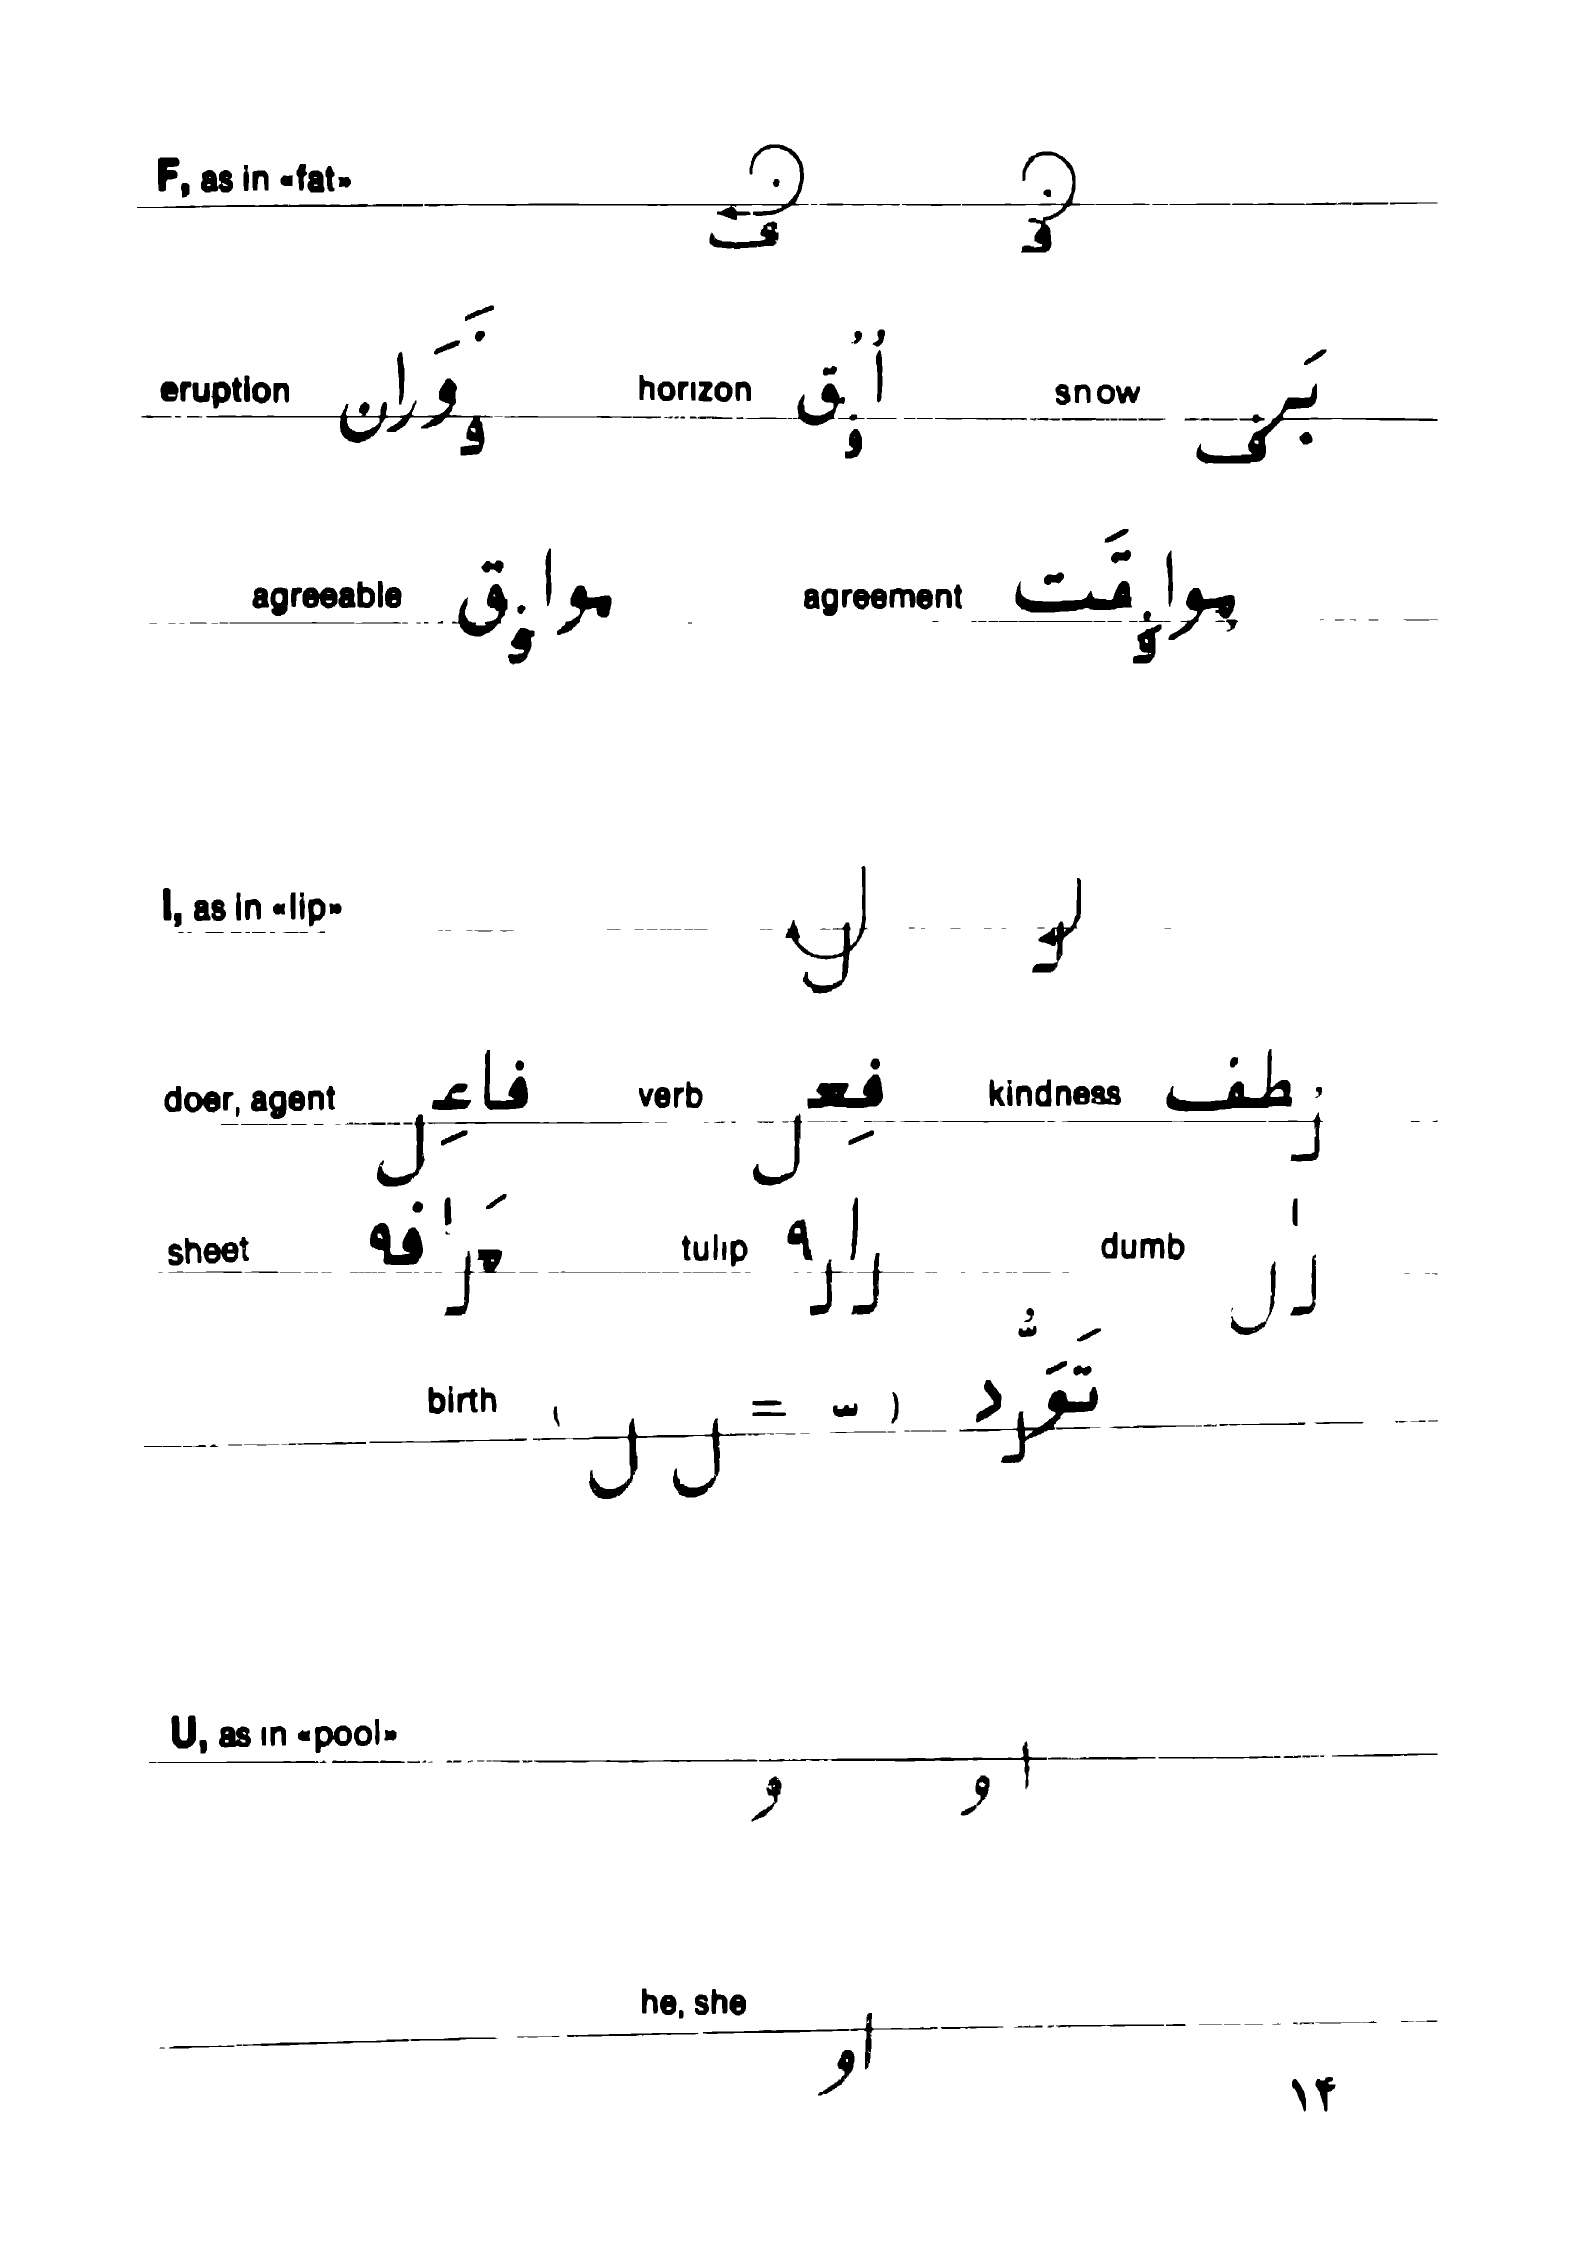 F, as in «fat» ف فـ
eruption فَوَران horizon اُفُق snow بَرف
agreeable موافق agreement موافقَت
l, as in «lip» ل لـ
doer, agent فاعِل verb فِعل kindness لُطف
sheet مَلافه tulip لاله dumb لال
birth ( ل ل = ّ ) تَوَلُّد
U, as in «pool» و او
he, she
او
۱۴